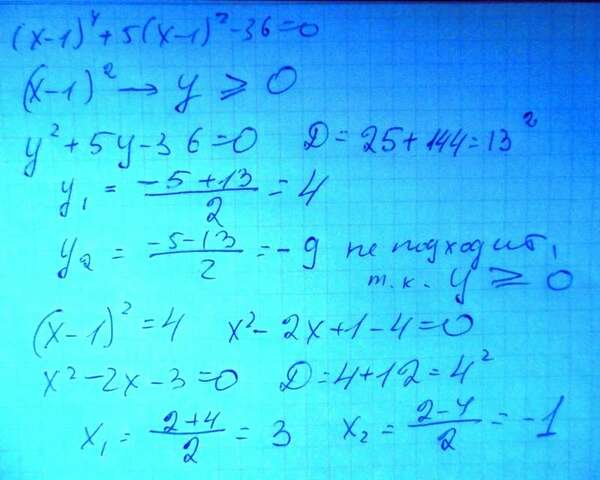 (x-1)⁴ + 5(x-1)² - 36 = 0
(x-1)² → y ⩾ 0
y² + 5y - 36 = 0 D = 25 + 144 = 13²
y₁ = (-5+13)/2 = 4
y₂ = (-5-13)/2 = -9 не подходит,
т.к. y ⩾ 0
(x-1)² = 4 x² - 2x + 1 - 4 = 0
x² - 2x - 3 = 0 D = 4 + 12 = 4²
x₁ = (2+4)/2 = 3 x₂ = (2-4)/2 = -1